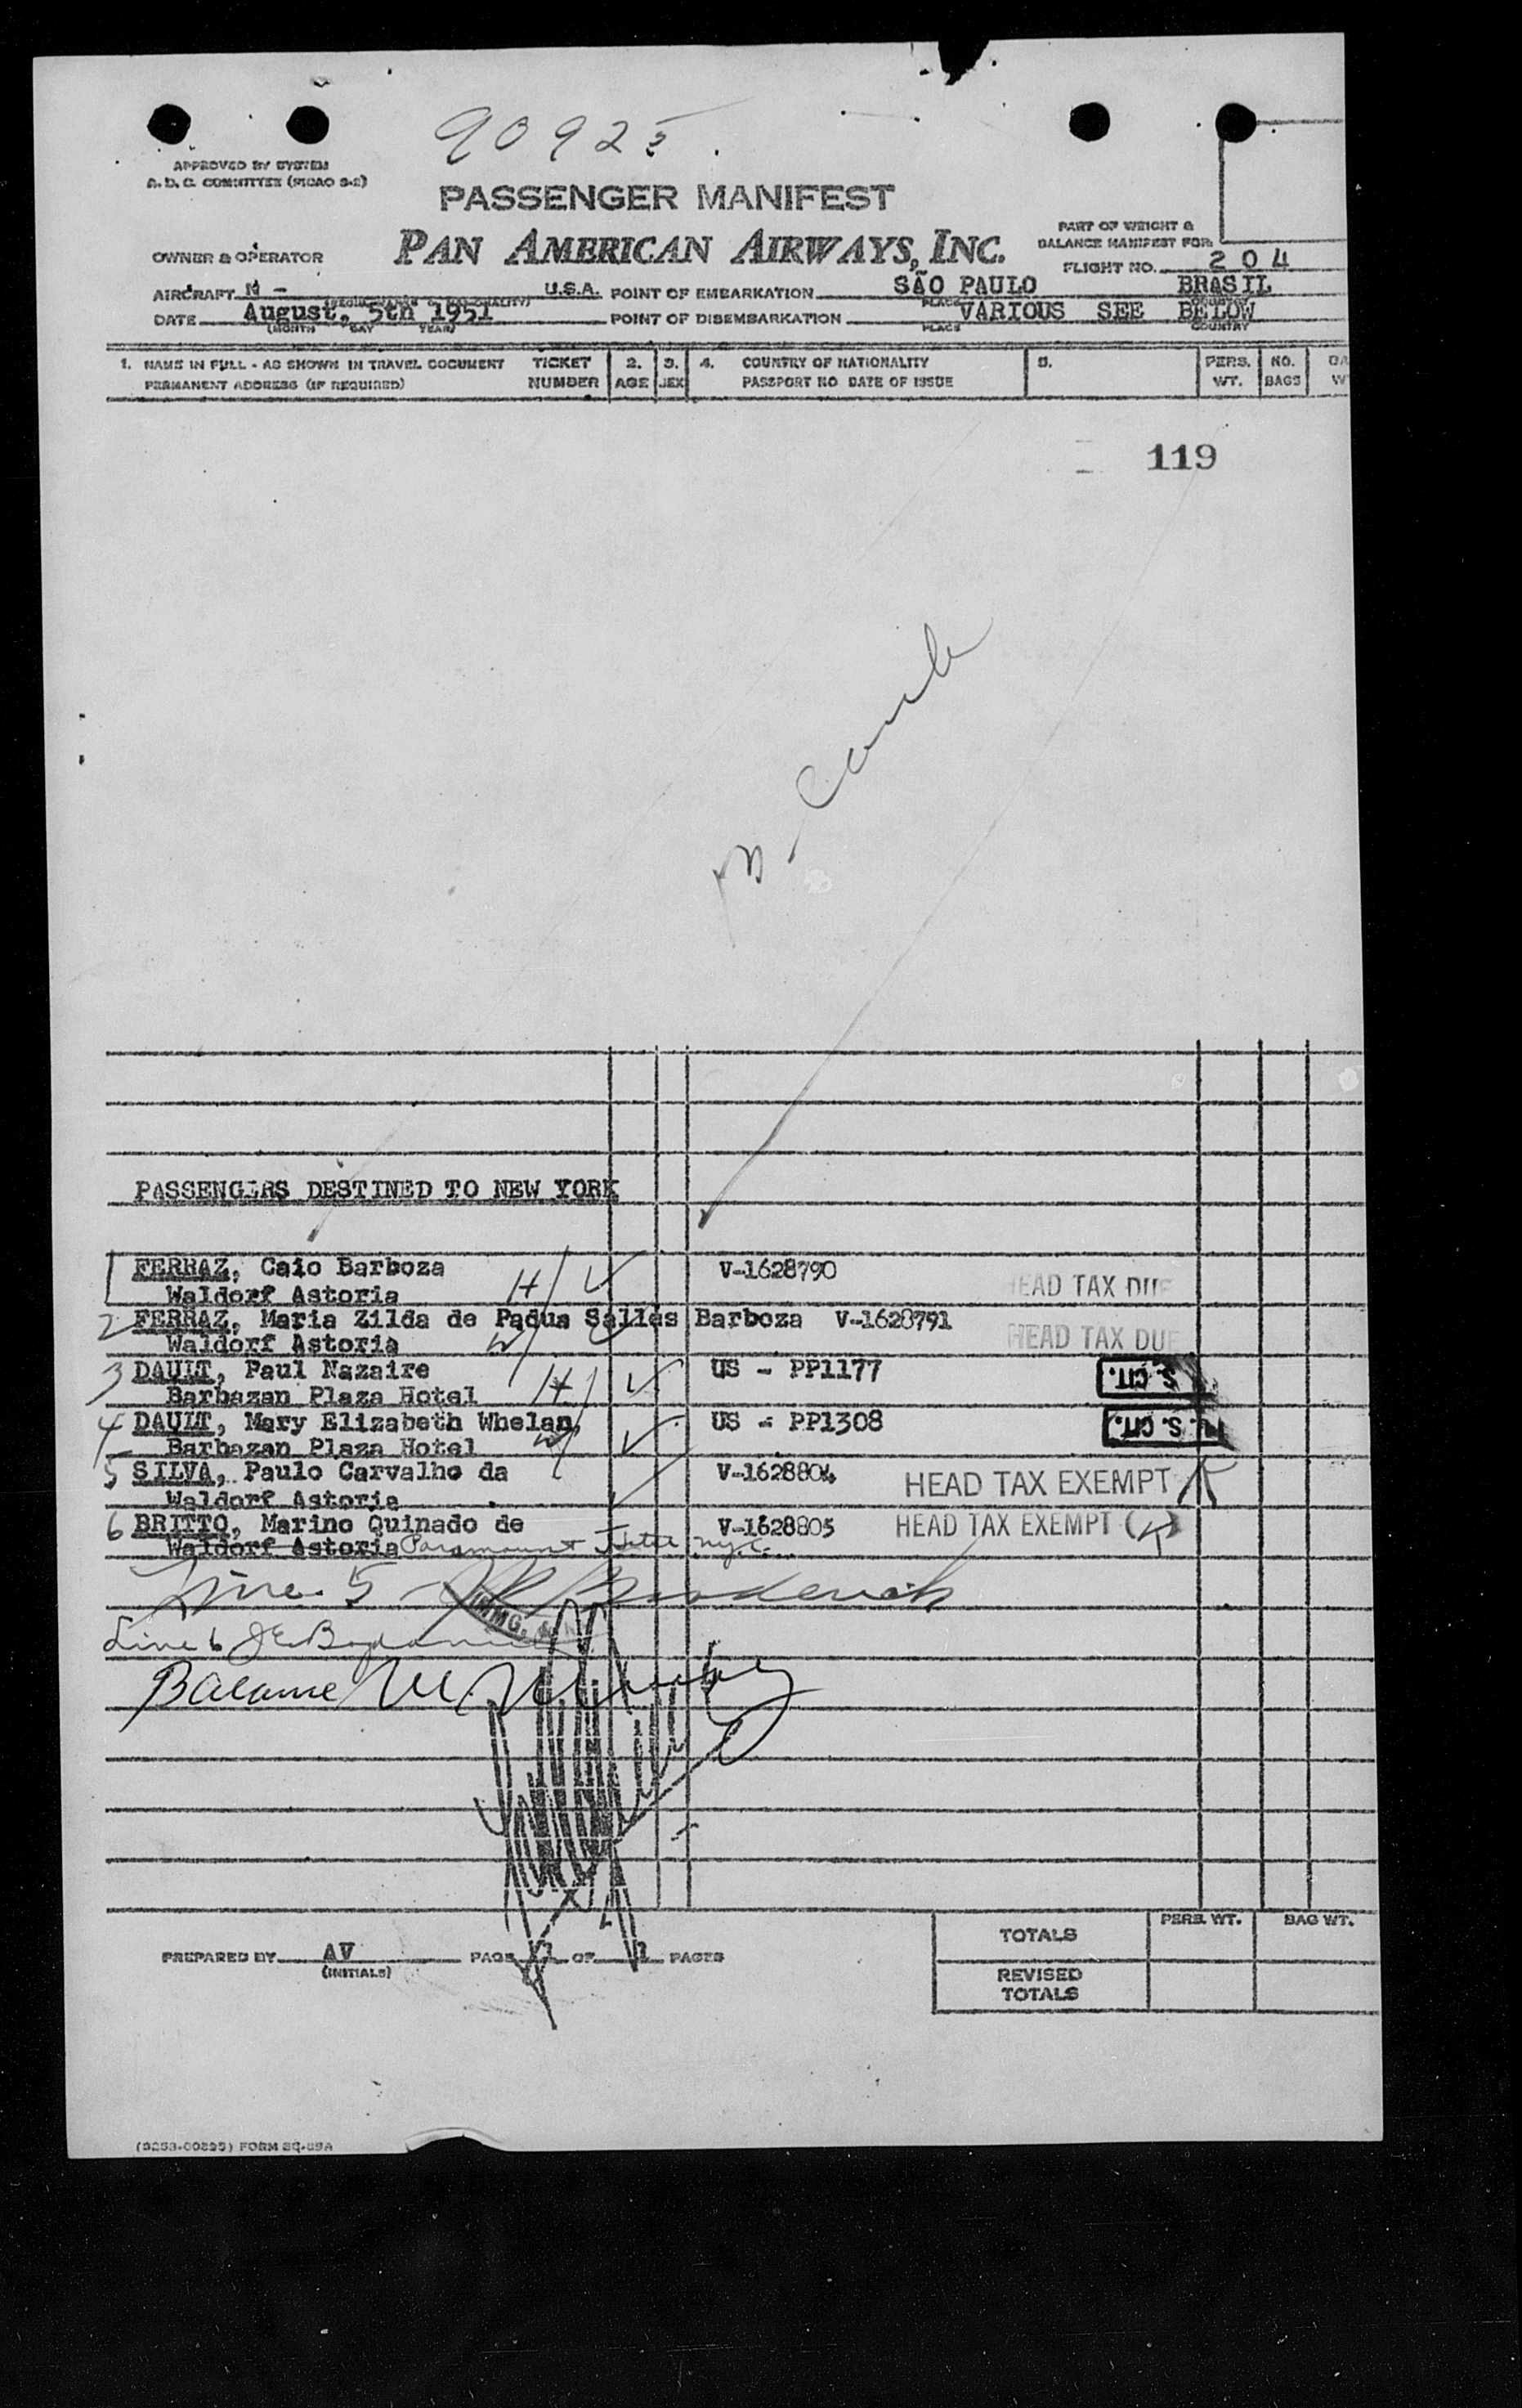 90925
APPROVED BY SYSTEM
A. D. C. COMMITTEE (PICAO S-2)
PASSENGER MANIFEST
OWNER & OPERATOR PAN AMERICAN AIRWAYS, INC.
PART OF WEIGHT &
BALANCE MANIFEST FOR:
FLIGHT NO. 204
AIRCRAFT N - U.S.A. POINT OF EMBARKATION SÃO PAULO BRASIL
DATE August, 5th 1951 POINT OF DISEMBARKATION VARIOUS SEE BELOW
(MONTH DAY YEAR) PLACE COUNTRY
1. NAME IN FULL - AS SHOWN IN TRAVEL DOCUMENT TICKET 2. 3. 4. COUNTRY OF NATIONALITY 5. PERS. NO.
PERMANENT ADDRESS (IF REQUIRED) NUMBER AGE SEX PASSPORT NO DATE OF ISSUE WT. BAGS
119
PASSENGERS DESTINED TO NEW YORK
1 FERRAZ, Caio Barboza H V-1628790
Waldorf Astoria HEAD TAX DUE
2 FERRAZ, Maria Zilda de Padua Salles Barboza V-1628791
Waldorf Astoria W HEAD TAX DUE
3 DAULT, Paul Nazaire US - PP1177 S. CIT.
Barbazan Plaza Hotel H
4 DAULT, Mary Elizabeth Whelan US - PP1308 U. S. CIT.
Barbazan Plaza Hotel W
5 SILVA, Paulo Carvalho da V-1628804 HEAD TAX EXEMPT
Waldorf Astoria
6 BRITTO, Marino Quinado de V-1628805 HEAD TAX EXEMPT
Waldorf Astoria Paramount Hotel N.Y.C.
Line 5
IMMG.
Line 6
Balance
PREPARED BY AV PAGE 1 OF 1 PAGES
(INITIALS)
TOTALS PERS. WT. BAG WT.
REVISED
TOTALS
(5253-00295) FORM SQ-29A